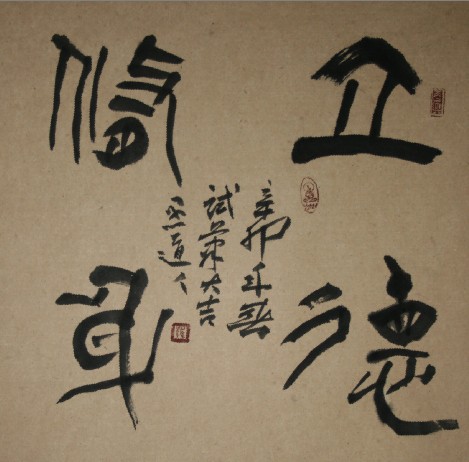 立德
修身
辛卯年春
试笔大吉
道人